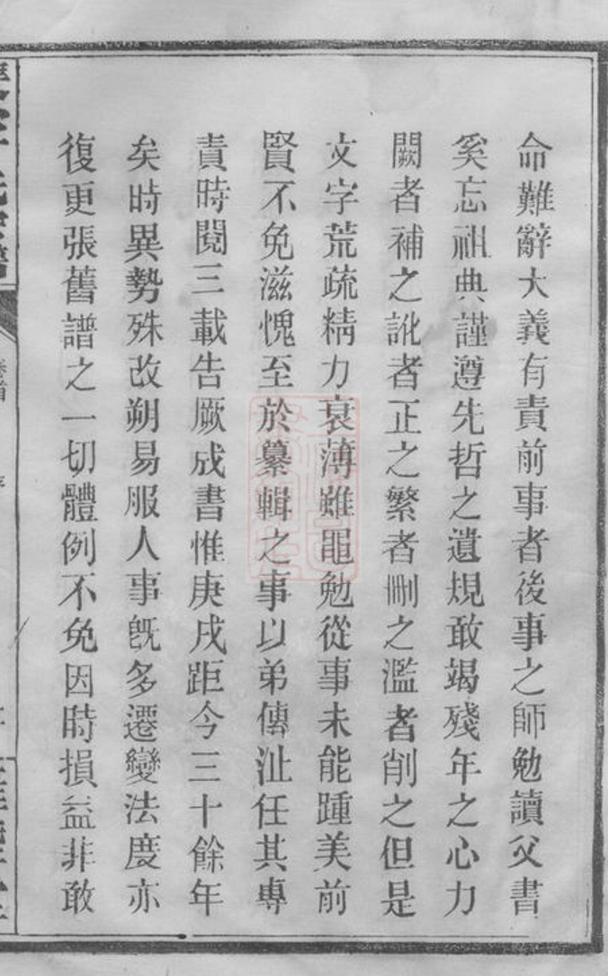 命難辭大義有責前事者後事之師勉讀父書
奚忘祖典謹遵先哲之遺規敢竭殘年之心力
闕者補之訛者正之繁者刪之濫者削之但是
文字荒疏精力衰薄雖黽勉從事未能踵美前
賢不免滋愧至於纂輯之事以弟傳沚任其專
責時閱三載告厥成書惟庚戌距今三十餘年
矣時異勢殊改朔易服人事旣多遷變法度亦
復更張舊譜之一切體例不免因時損益非敢
卷首